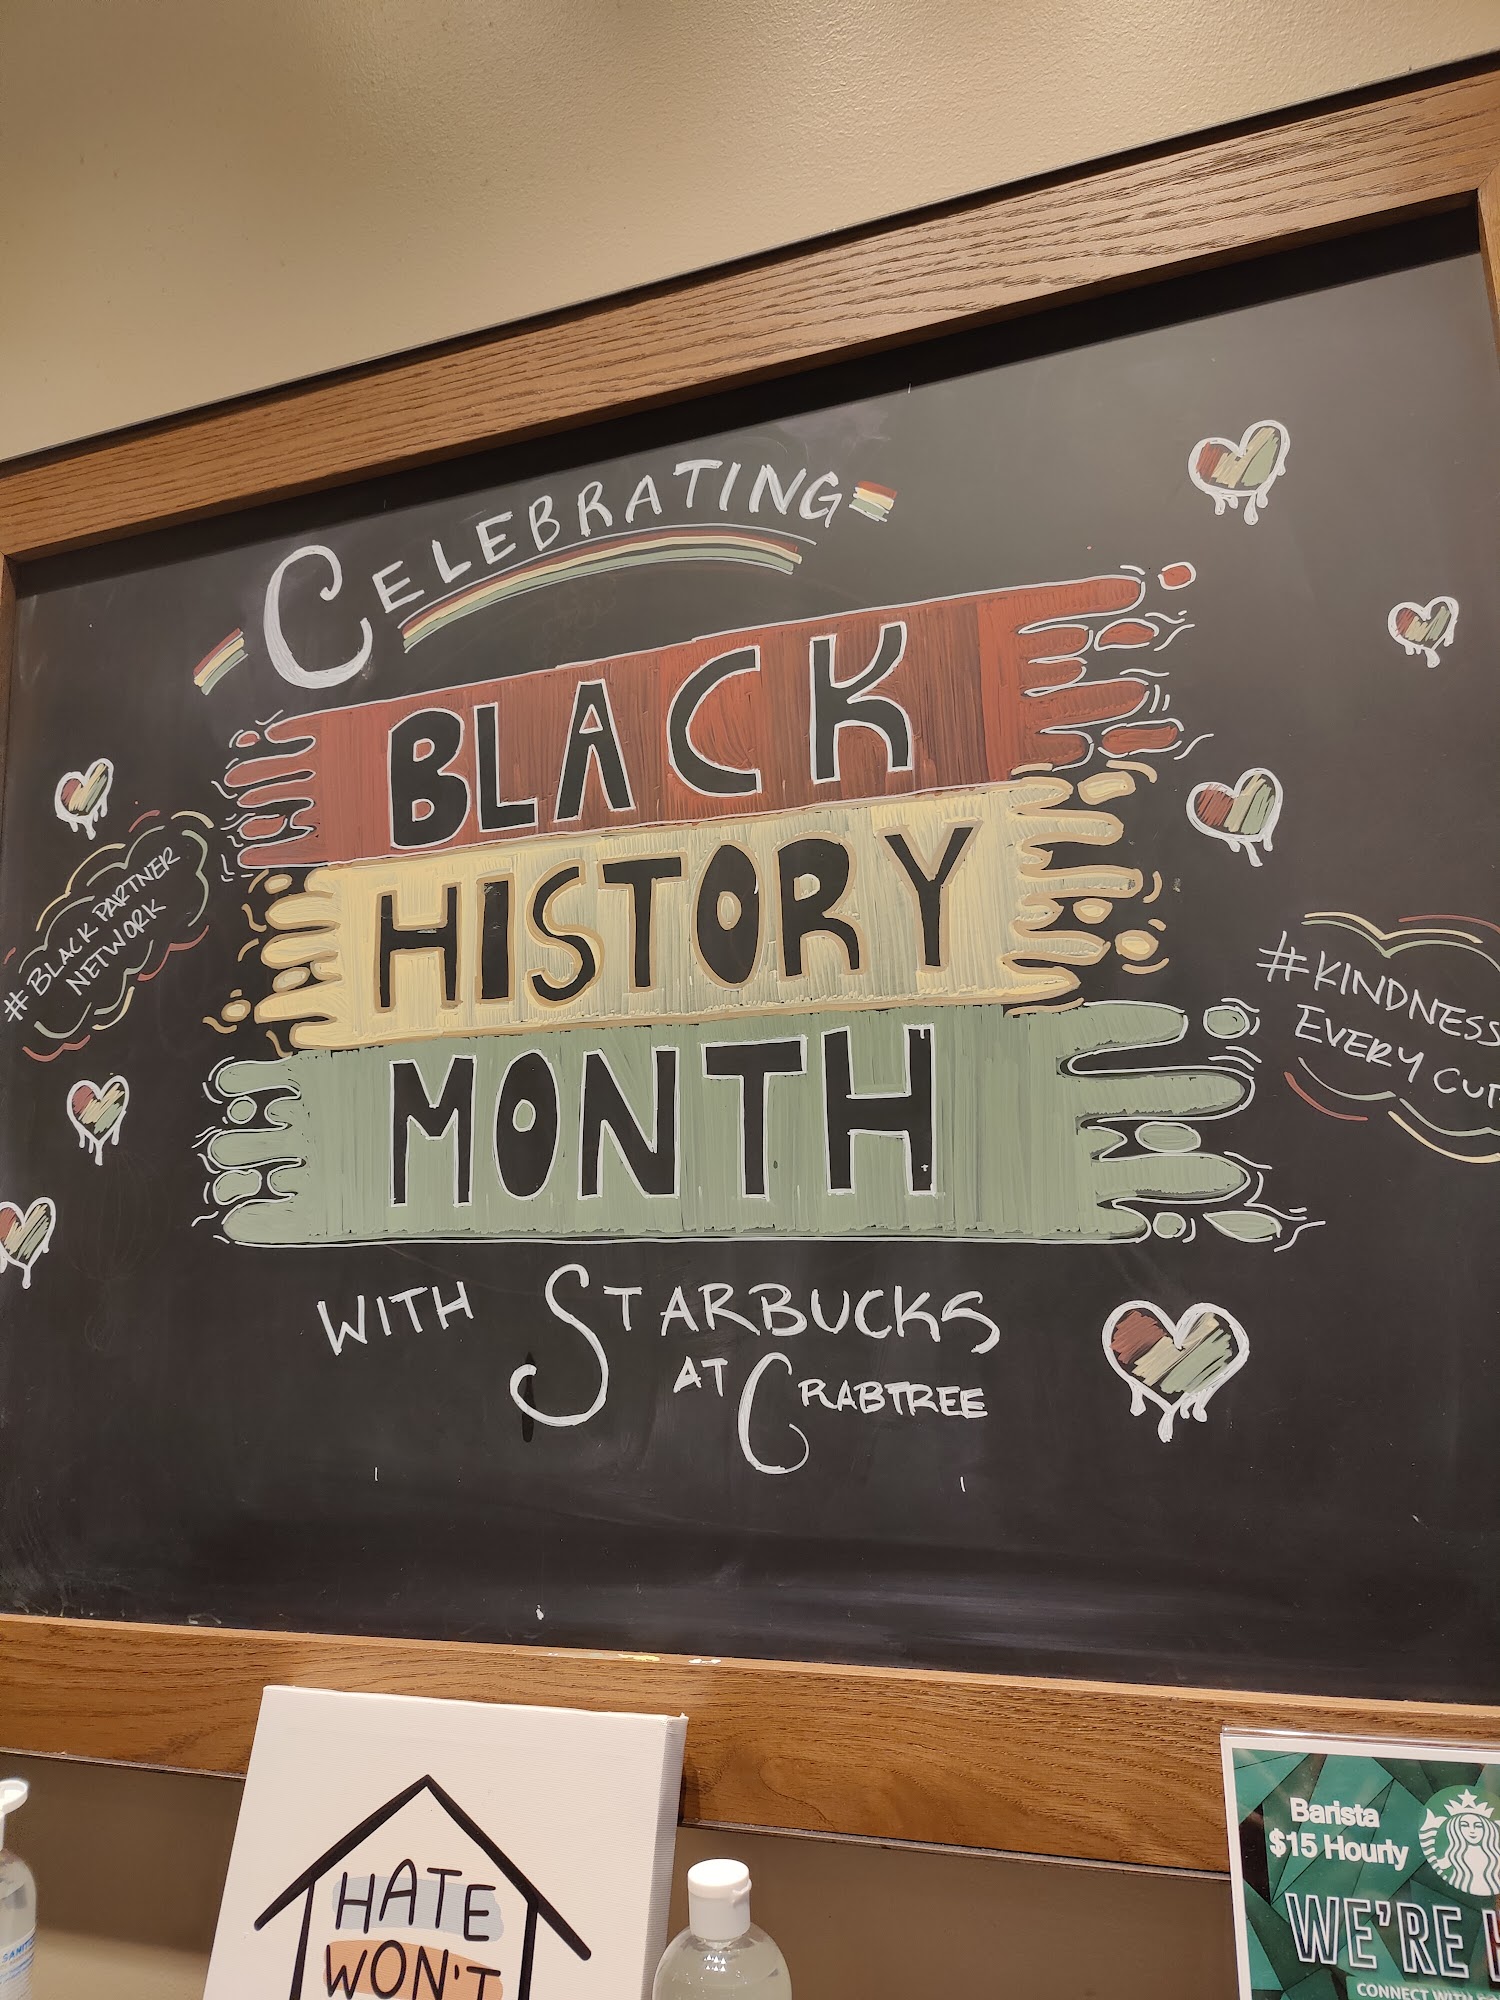 CELEBRATING
BLACK
HISTORY
MONTH
WITH STARBUCKS
AT CRABTREE
#BLACK PARTNER
NETWORK
#KINDNESS
EVERY
HATE
WON'T
Barista
$15 Hourly
WE'RE
CONNECT WITH